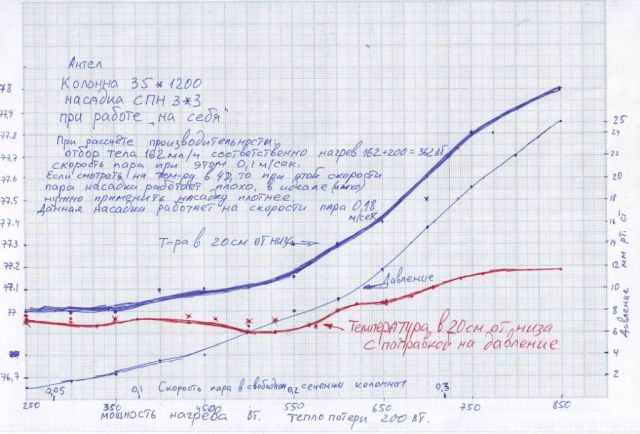 Антел
Колонна 35*1200
насадка СПН 3*3
при работе „на себя"
При рассчёте производительности,
отбор тела 162 мл/ч, соответственно нагрев 162+200=362 Вт.
скорость пара при этом 0,1 м/сек.
Если смотреть на тем-ру в 4Д, то при этой скорости
пара насадка работает плохо, в идеале (имхо)
нужно применить насадку плотнее.
Данная насадка работает на скорости пара 0,18
м/сек
Т-ра в 20см от низа
Давление
Температура в 20см от низа
с поправкой на давление
78
77.9
77.8
77.7
77.6
77.5
77.4
77.3
77.2
77.1
77
76,7
25
24
22
20
18
16
14
12
10
8
6
4
2
Давление мм рт. ст
0,05 0,1 Скорость пара в свободном 0,2 сечении колонны 0,3
250 350 4500 550 650 750 850
мощность нагрева Вт. тепло потери 200 Вт.